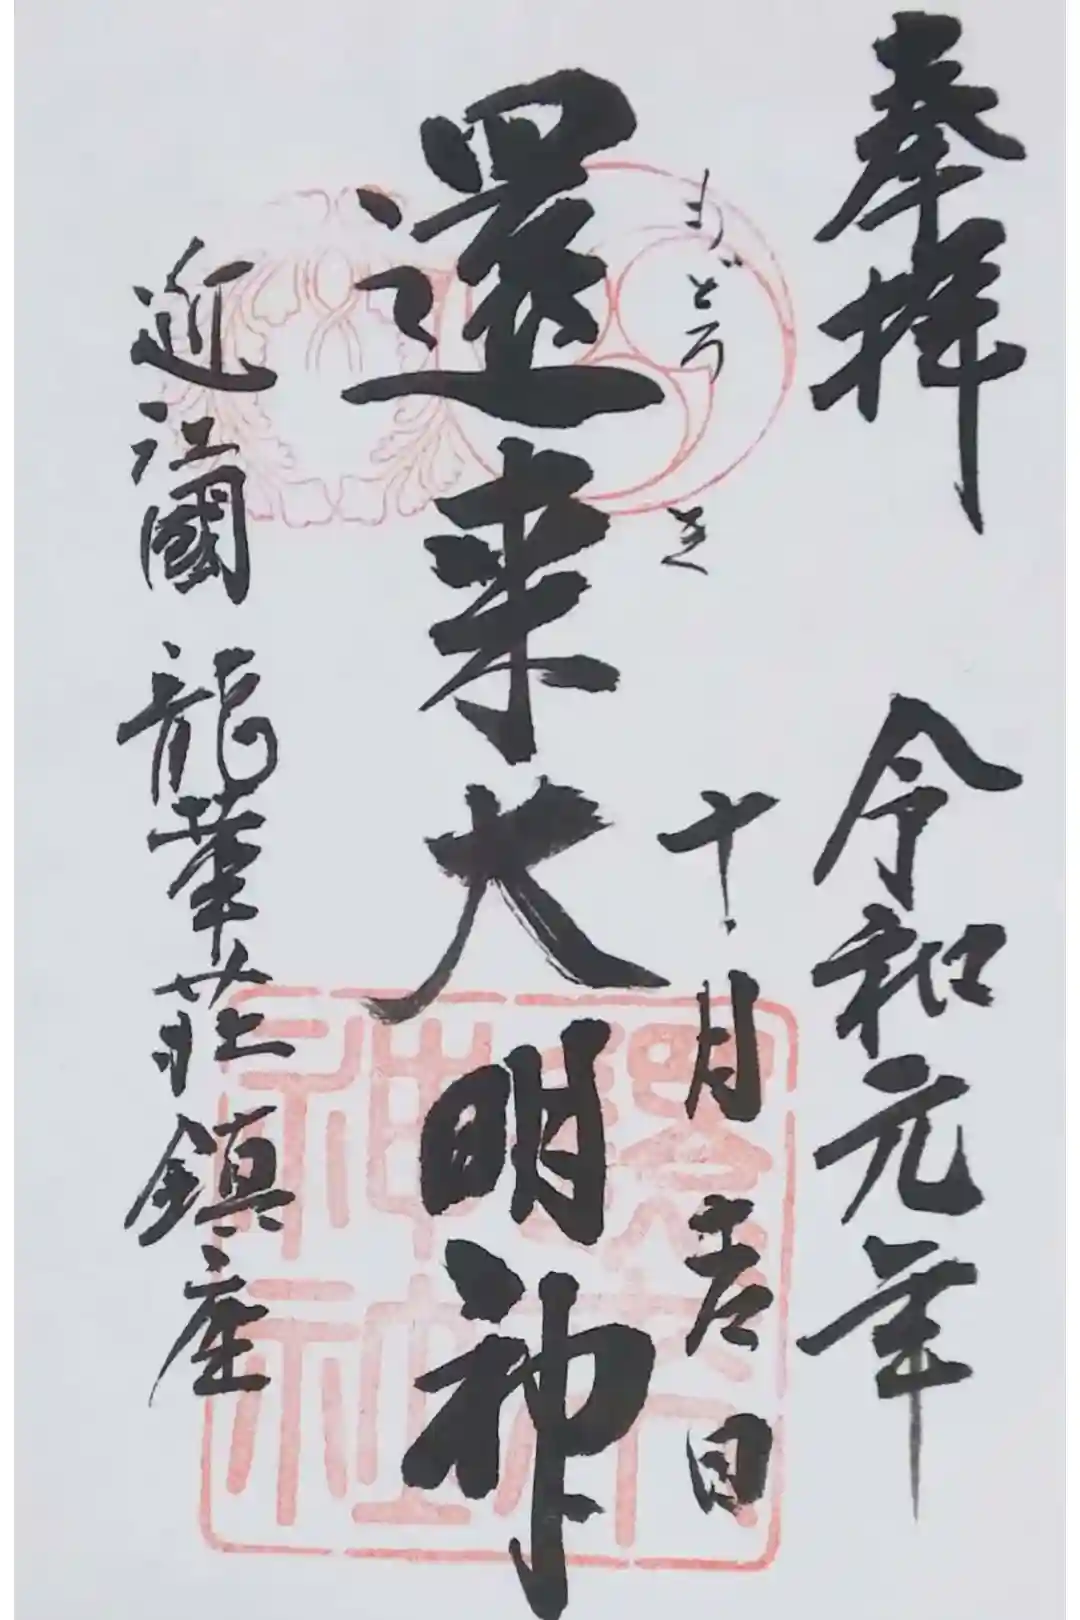 奉拝
令和元年
十月吉日
もどろき
還来大明神
近江國 龍華荘鎮座
還来
神社